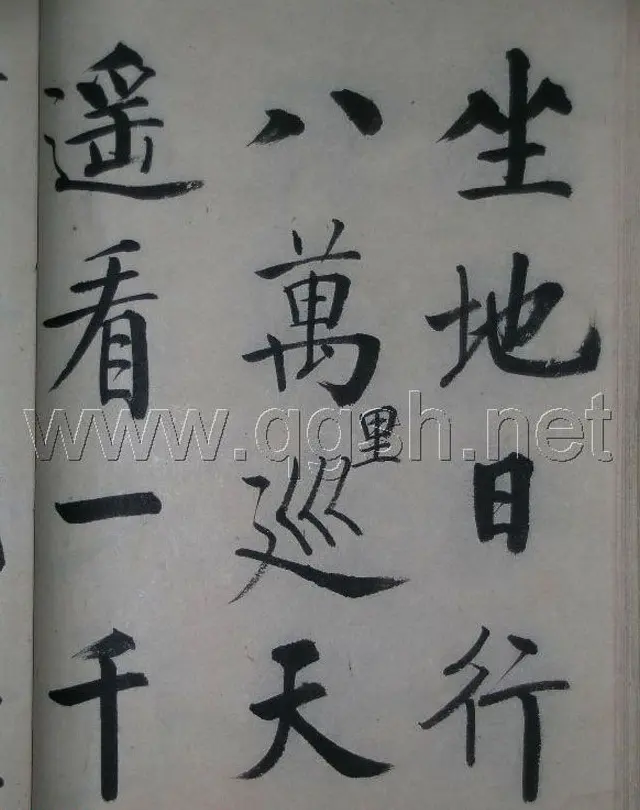 坐地日行
八萬里巡天
遥看一千
www.qgsh.net